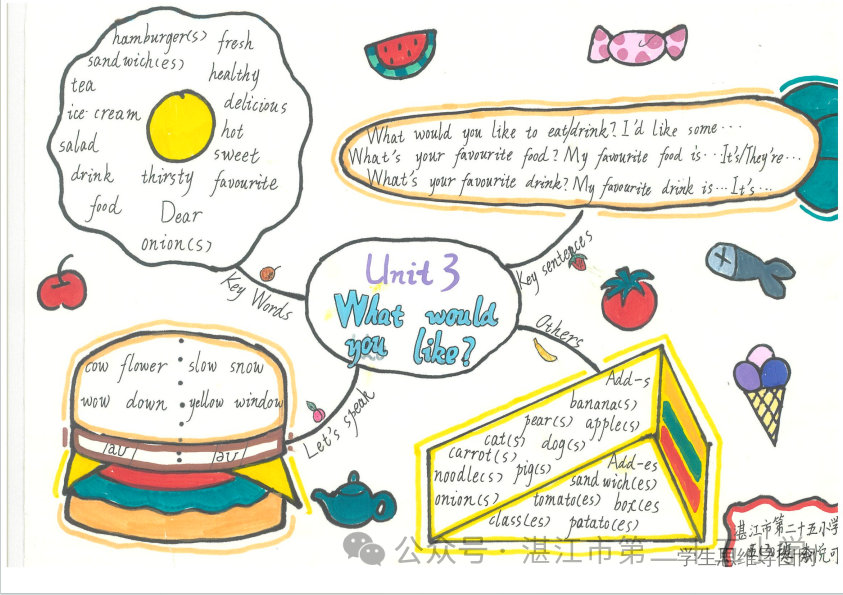 hamburger(s) fresh
sandwich(es)
tea healthy
ice-cream delicious
salad hot
sweet
drink thirsty favourite
food Dear
onion(s)
Key Words
What would you like to eat/drink? I'd like some...
What's your favourite food? My favourite food is... It's/They're...
What's your favourite drink? My favourite drink is... It's...
Key sentences
Unit 3
What would
you like?
Others
Let's speak
cow flower slow snow
wow down yellow window
/aʊ/ /əʊ/
Add-s
banana(s)
pear(s) apple(s)
cat(s) dog(s)
carrot(s)
noodle(s) pig(s)
onion(s)
Add-es
sandwich(es)
tomato(es) box(es
class(es) patato(es)
湛江市第二十五小学
公众号·湛江市第二
学生思维导图